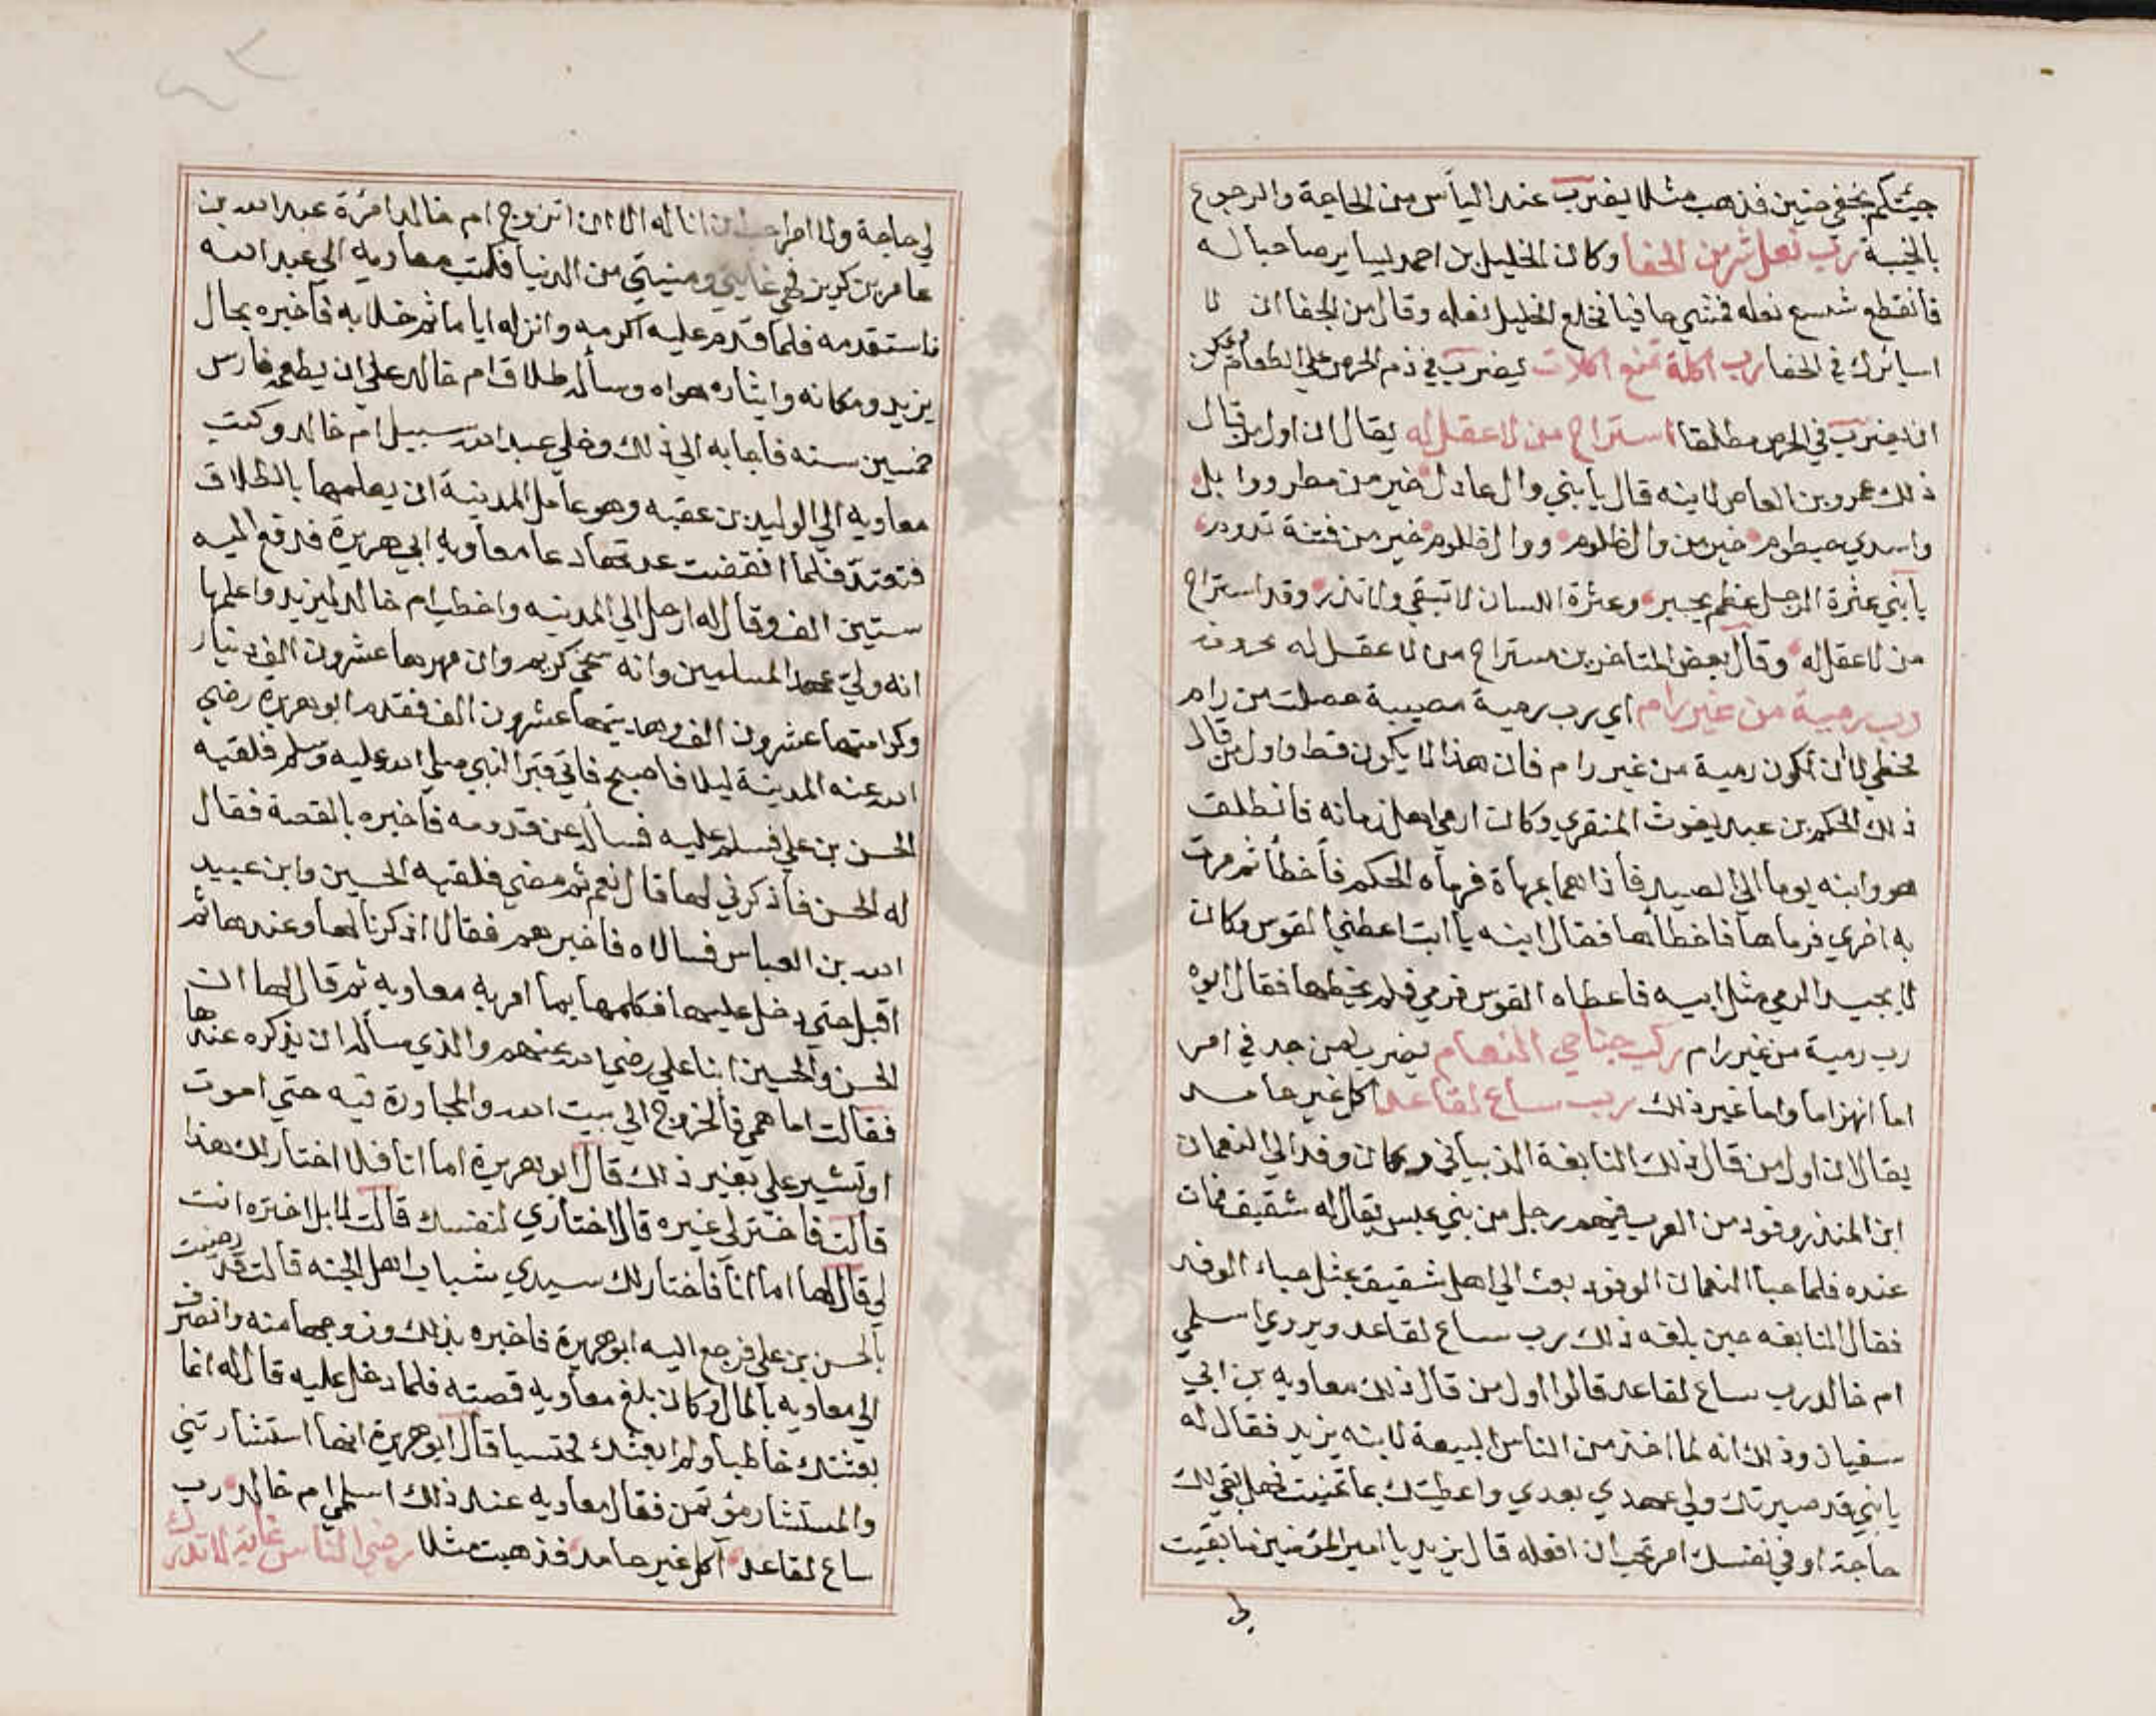 جئتكم بخفي حنين فذهب مثلا يضرب عند اليأس من الحاجة والرجوع
بالخيبة رب نعل شر من الحفا وكان الخليل بن احمد يساير صاحبا له
فانقطع شسع نعله فمشي حافيا فخلع الخليل نعله وقال من الجفا ان لا
اسايرك في الحفا رب اكلة تمنع اكلات يضرب في ذم الحرص علي الطعام ويمكن
ان يضرب في الحرص مطلقا استراح من لا عقل له يقال ان اول من قال
ذلك عمرو بن العاص لابنه قال يا بني وال عادل خير من مطر وابل
واسد حطوم خير من وال ظلوم ووال ظلوم خير من فتنة تدوم
يا بني عثرة الرجل عظم يجبر وعثرة اللسان لا تبقي ولا تذر وقد استراح
من لا عقل له وقال بعض المتاخرين مستراح من لا عقل له
رب رمية من غير رام اي رب رمية مصيبة حصلت من رام
مخطي لا ان تكون رمية من غير رام فان هذا لا يكون قط واول من قال
ذلك الحكم بن عبد يغوث المنقري وكان ارمي اهل زمانه فانطلق
هو وابنه يوما الي الصيد فاذا هما بمهاة فرماه الحكم فأخطأ ثم مرت
به اخري فرماها فاخطأها فقال ابنه يا ابت اعطني القوس وكان
لا يجيد الرمي مثل ابيه فاعطاه القوس فرمي فلم يخطها فقال ابوه
رب رمية من غير رام ركب جناحي النعام يضرب لمن جد في امر
اما انهزاما واما غير ذلك رب ساع لقاعد اكل غير حامد
يقال ان اول من قال ذلك النابغة الذبياني وكان وفد الي النعمان
ابن المنذر وفود من العرب فيهم رجل من بني عبس يقال له شقيق فمات
عنده فلما حبا النعمان الوفود بعث الي اهل شقيق بمثل حباء الوفد
فقال النابغه حين بلغه ذلك رب ساع لقاعد ويروي اسلمي
ام خالد رب ساع لقاعد قالوا اول من قال ذلك معاويه بن ابي
سفيان وذلك انه لما اخذ من الناس البيعة لابنه يزيد فقال له
يا بني قد صيرتك ولي عهدي بعدي واعطيتك ما تمنيت فهل بقي لك
حاجة او في نفسك امر تحب ان افعله قال يزيد يا امير المؤمنين ما بقيت
لي
لي حاجة ولا امر احب ان اناله الا ان اتزوج ام خالد امرة عبد الله بن
عامر بن كريز فهي غايتي ومنيتي من الدنيا فكتب معاويه الي عبد الله
فاستقدمه فلما قدم عليه اكرمه وانزله اياما ثم خلا به فأخبره بحال
يزيد ومكانه وايثاره هواه وسأله طلاق ام خالد علي ان يطعمه فارس
خمسين سنه فاجابه الي ذلك وخلي عبد الله سبيل ام خالد وكتب
معاويه الي الوليد بن عقبه وهو عامل المدينة ان يعلمها بالطلاق
فتعتد فلما انقضت عدتها دعا معاويه ابي هريرة فدفع اليه
ستين الف وقال له ارحل الي المدينه واخطب ام خالد ليزيد واعلمها
انه ولي عهد المسلمين وانه سخي كريم وان مهرها عشرون الف دينار
وكرامتها عشرون الف وهديتها عشرون الف فقدم ابو هريرة رضي
الله عنه المدينة ليلا فاصبح فاتي قبر النبي صلي الله عليه وسلم فلقيه
الحسن بن علي فسلم عليه فسأل عن قدومه فاخبره بالقصة فقال
له الحسن فاذكرني لها قال نعم ثم مضي فلقيه الحسين وابن عبيد
الله بن العباس فسالاه فاخبرهم فقالا اذكرنا لها وعندها ثم
اقبل حتي دخل عليها فكلمها بما امر به معاويه ثم قال لها ان
الحسن والحسين ابنا علي رضي الله عنهم والذي سأله ان يذكره عندها
فقالت اما همي فالخروج الي بيت الله والمجاورة فيه حتي اموت
او تشير علي بغير ذلك قال ابو هريرة اما انا فلا اختار لك هذا
قالت فاختر لي غيره قال اختاري لنفسك قالت لا بل اختره انت
لي قال لها اما انا فاختار لك سيدي شباب اهل الجنه قالت قد رضيت
بالحسن بن علي فرجع اليه ابو هريرة فاخبره بذلك وزوجها منه وانصرف
الي معاويه بالمال وكان بلغ معاويه قصته فلما دخل عليه قال له انما
بعثتك خاطبا ولم ابعثك محتسبا قال ابو هريرة انها استشارتني
والمستشار مؤتمن فقال معاويه عند ذلك اسلمي ام خالد رب
ساع لقاعد اكل غير حامد فذهبت مثلا رضي الناس غاية لا تدرك